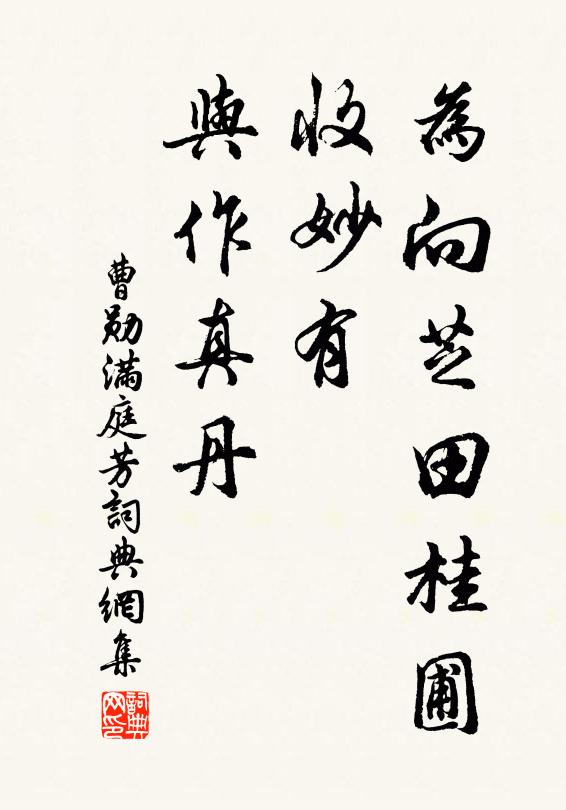 為向芝田桂圃
收妙有
與作真丹
曹勛滿庭芳詞典網集
詞典网印